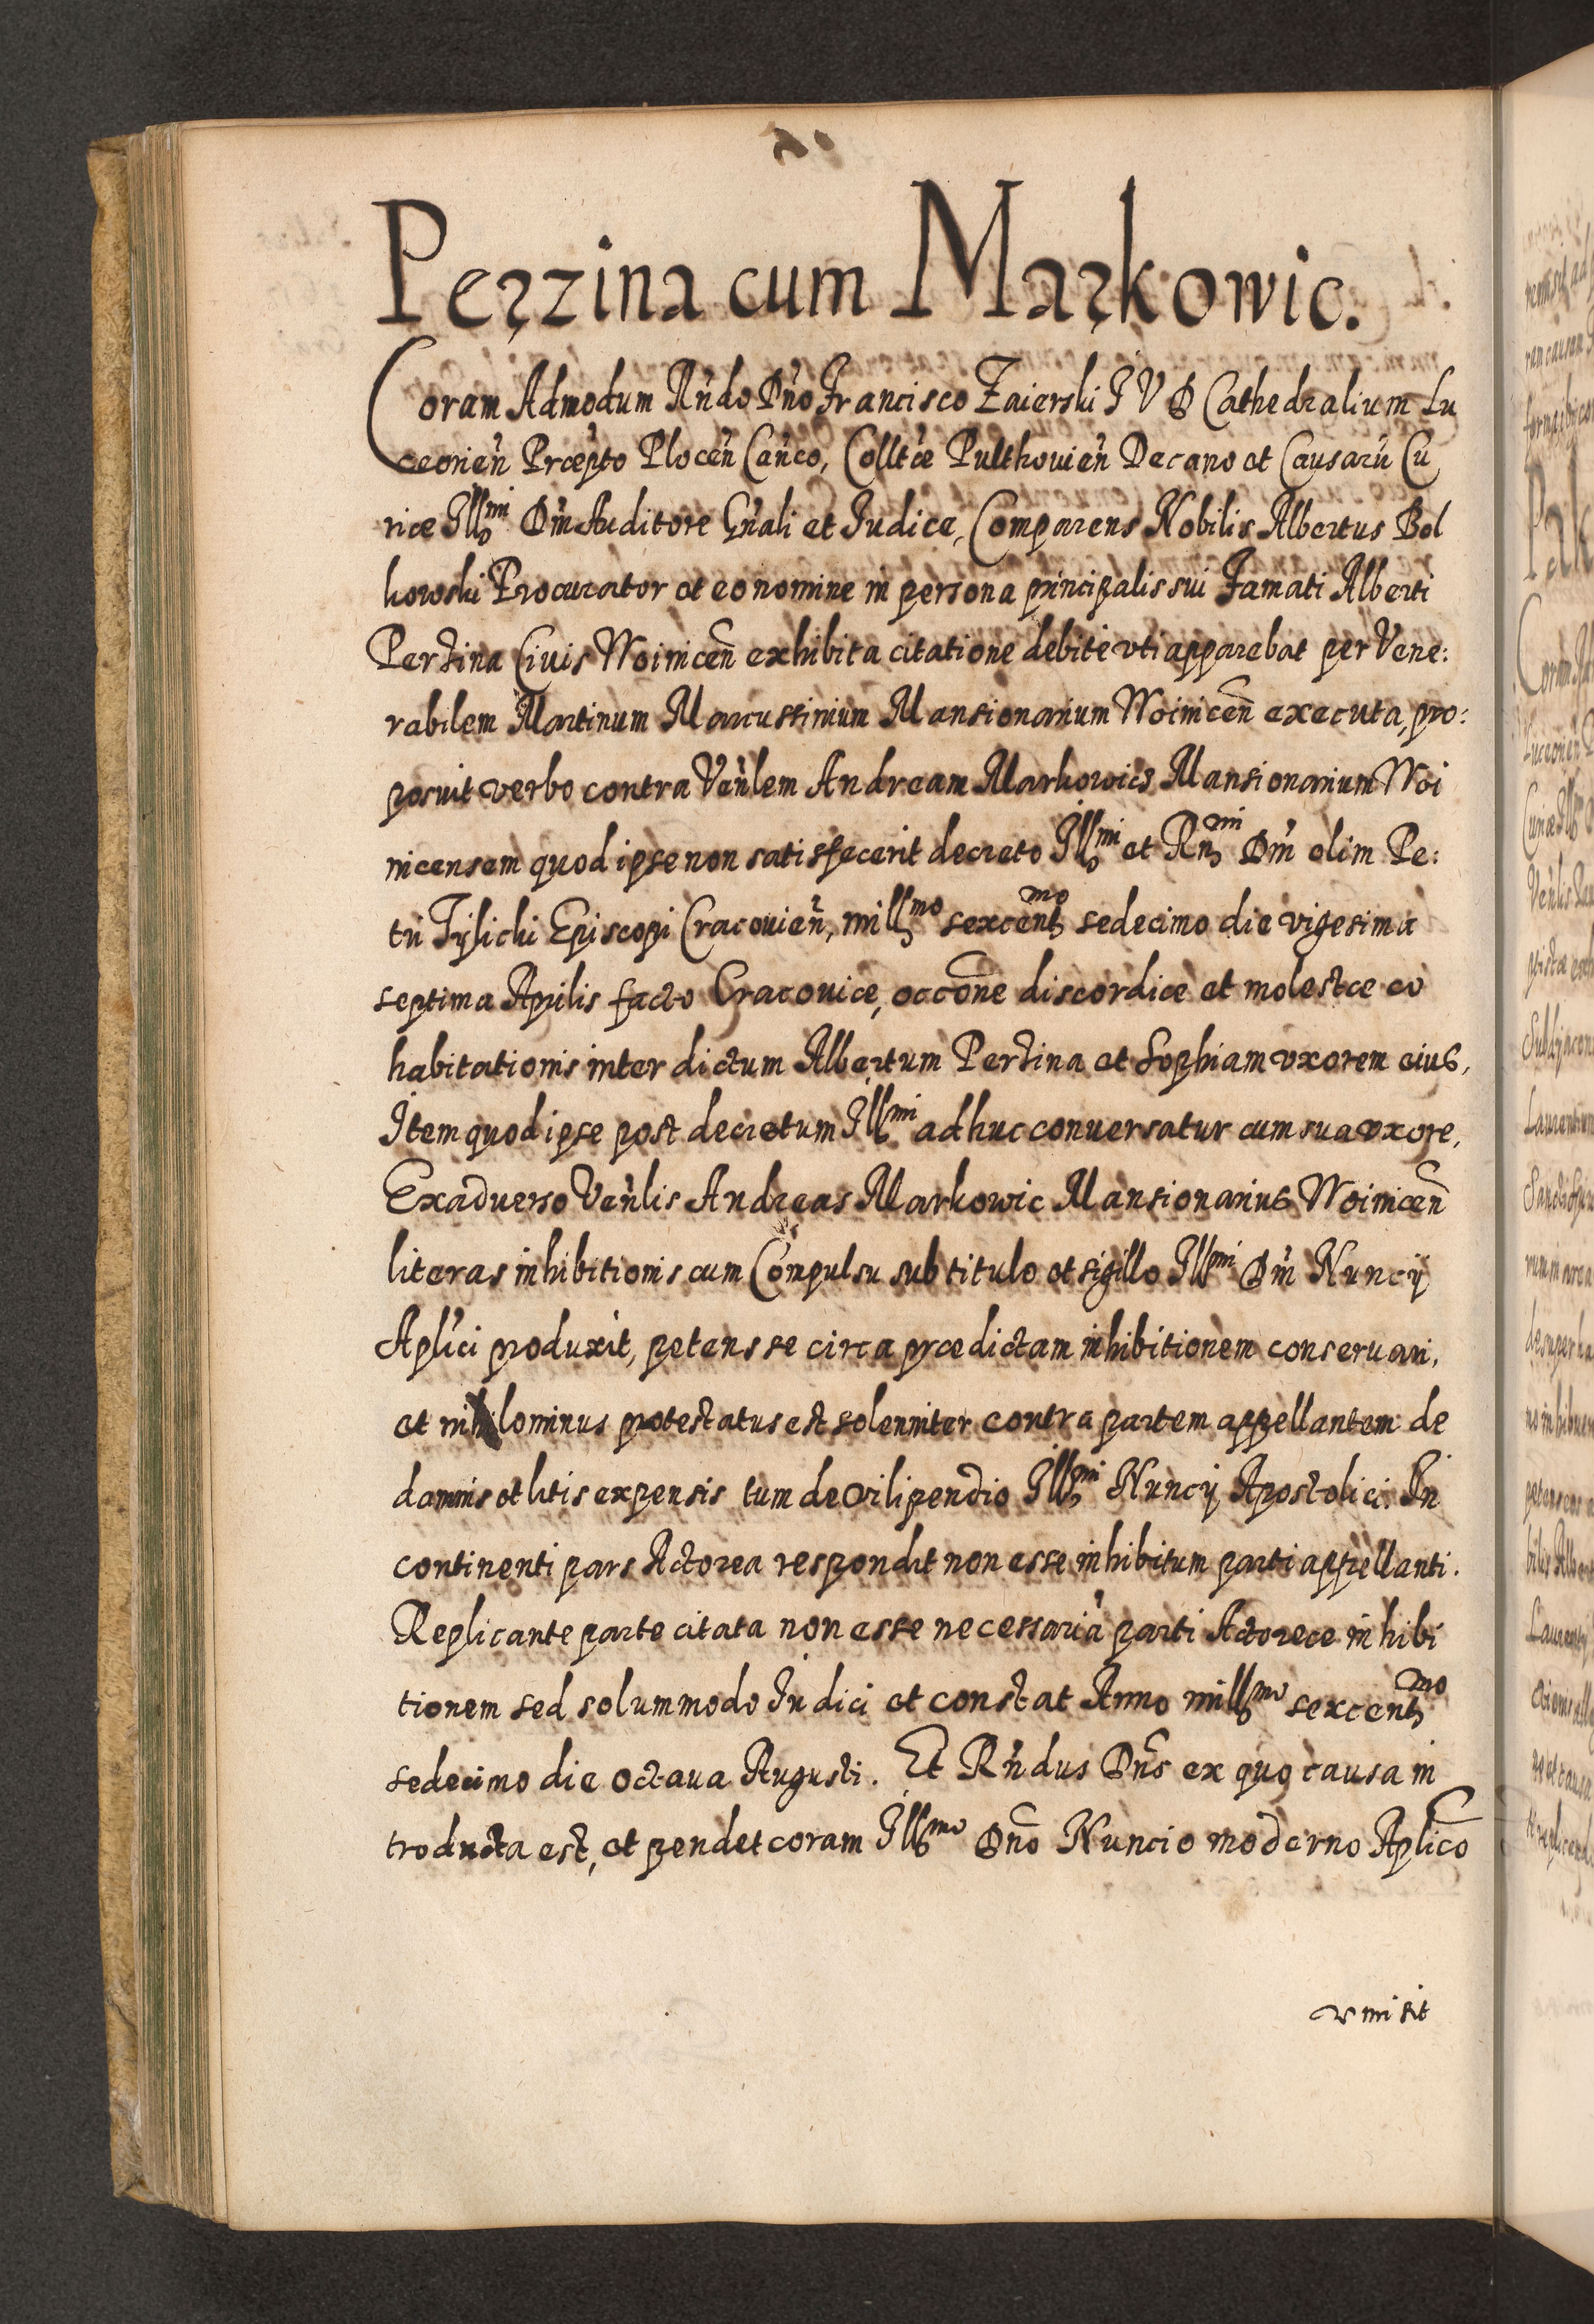 Perzina cum Markowic.
Coram Admodum Rndo Dno Francisco Zaierski I V D Cathedralium Lu
ceorien Præpto Plocen Canco, Colltæ Pulthouien Decano et Causarū Cu
riæ Illmi Dni Auditore Gnali et Iudice, Comparens Nobilis Albertus Bol
kowski Procurator et eo nomine in persona principalis sui Famati Alberti
Perzina Ciuis Woinicen exhibita citatione debite vti apparebat per Vene:
rabilem Martinum Marcussinium Mansionarium Woinicen executa, pro:
posuit verbo contra Venlem Andream Markowicz Mansionarium Woi
nicensem quod ipse non satisfecerit decreto Illmi et Rmi Dni olim Pe:
tri Tylicki Episcopi Cracouien, millmo sexcentmo sedecimo die vigesima
septima Aprilis facto Cracouiæ, occone discordiæ et molestæ co
habitationis inter dictum Albertum Perzina et Sophiam vxorem eius,
Item quod ipse post decretum Illmi adhuc conuersatur cum sua vxore,
Exaduerso Venlis Andreas Markowic Mansionarius Woinicen
literas inhibitionis cum Compulsu sub titulo et sigillo Illmi Dni Nuncij
Aplici produxit, petens se circa prædictam inhibitionem conseruari,
et nihilominus protestatus est solenniter contra partem appellantem de
damnis et litis expensis tum de vilipendio Illmi Nuncij Apostolici. In
continenti pars Actorea respondit non esse inhibitum parti appellanti.
Replicante parte citata non esse necessariā parti Actoreæ inhibi
tionem sed solummodo Iudici et constat Anno millmo sexcentmo
sedecimo die octaua Augusti. Et Rndus Dns ex quo causa in
troducta est, et pendet coram Illmo Dno Nuncio moderno Aplico